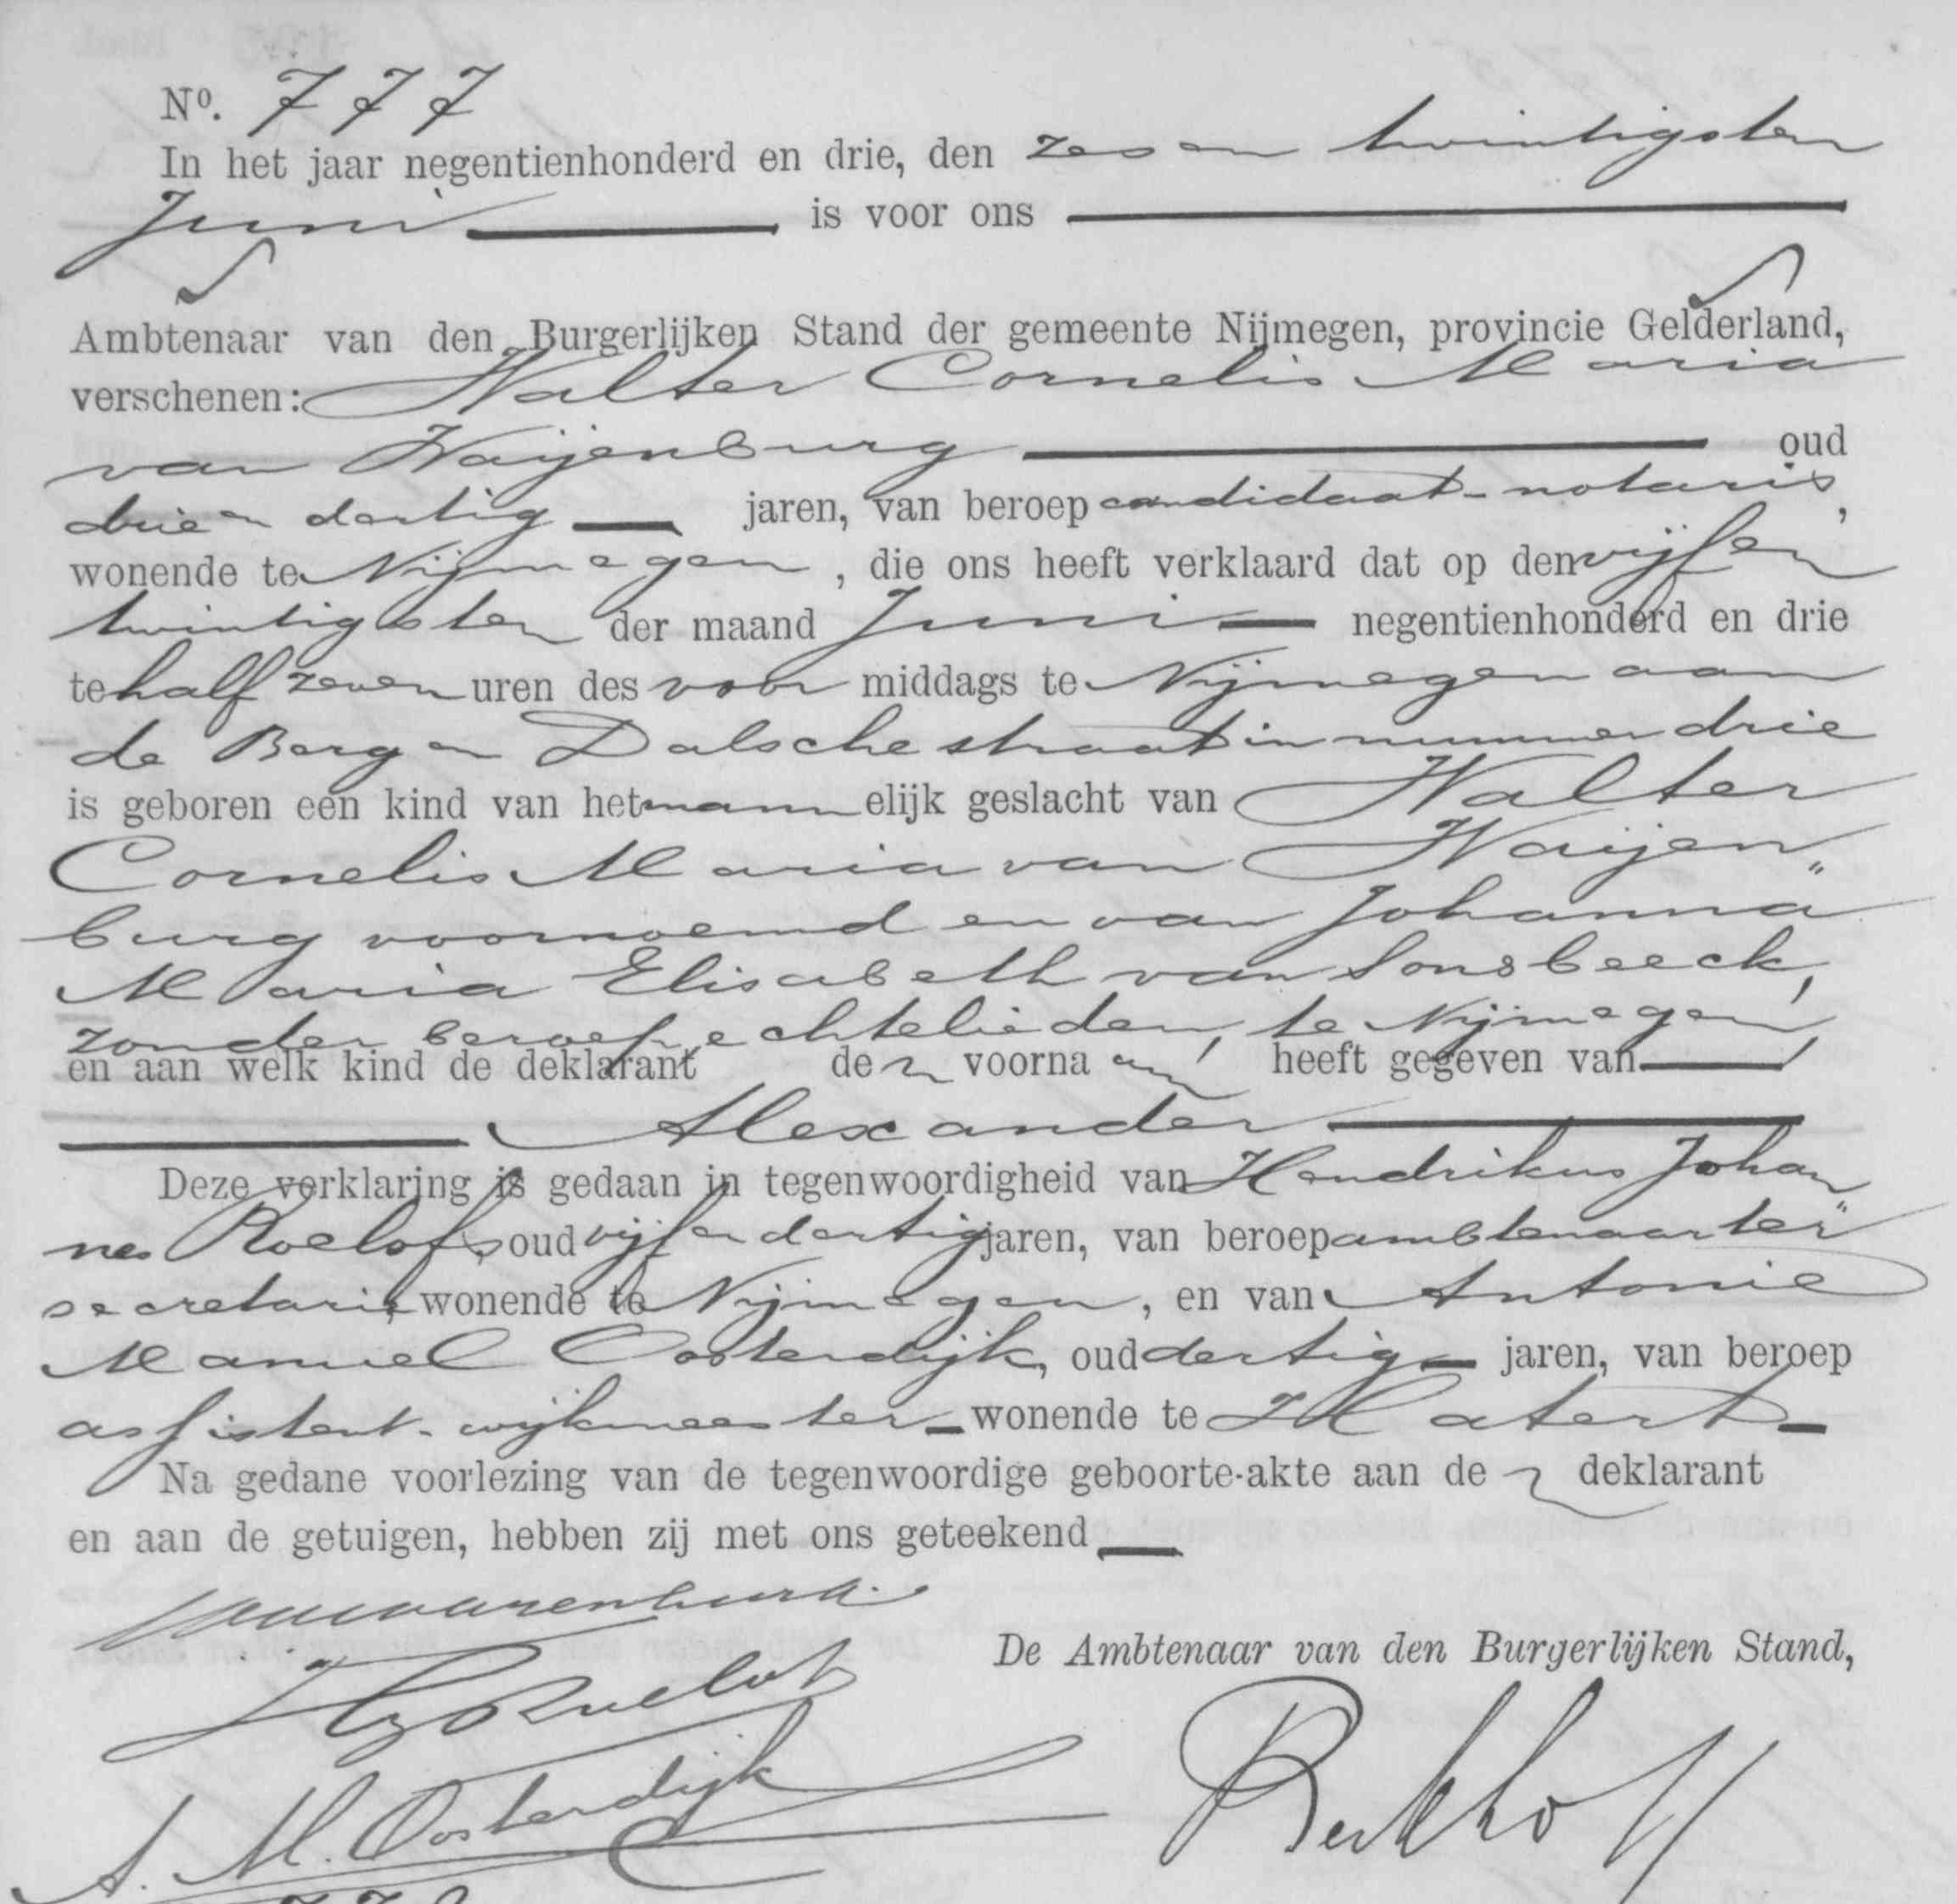 Nº. 777
In het jaar negentienhonderd en drie, den zes en twintigsten
Juni is voor ons
Ambtenaar van den Burgerlijken Stand der gemeente Nijmegen, provincie Gelderland,
verschenen: Walter Cornelis Maria
van Waijenburg oud
drie en dertig jaren, van beroep candidaat-notaris,
wonende te Nijmegen, die ons heeft verklaard dat op den vijf en
twintigsten der maand Juni negentienhonderd en drie
te half zeven uren des voor middags te Nijmegen aan
de Berg en Dalsche straat in nummer drie
is geboren een kind van het mannelijk geslacht van Walter
Cornelis Maria van Waijen„
burg voornoemd en van Johanna
Maria Elisabeth van Sonsbeeck,
zonder beroep, echtelieden, te Nijmegen,
en aan welk kind de deklarant den voornaam heeft gegeven van
Alexander
Deze verklaring is gedaan in tegenwoordigheid van Hendrikus Johan„
nes Roelofs, oud vijf en dertig jaren, van beroep ambtenaar ter
secretarie, wonende te Nijmegen, en van Antonie
Manuel Oosterdijk, oud dertig jaren, van beroep
assistent-wijkmeester wonende te Hatert
Na gedane voorlezing van de tegenwoordige geboorte-akte aan den deklarant
en aan de getuigen, hebben zij met ons geteekend
De Ambtenaar van den Burgerlijken Stand,
HJ Roelofs
A. M. Oosterdijk